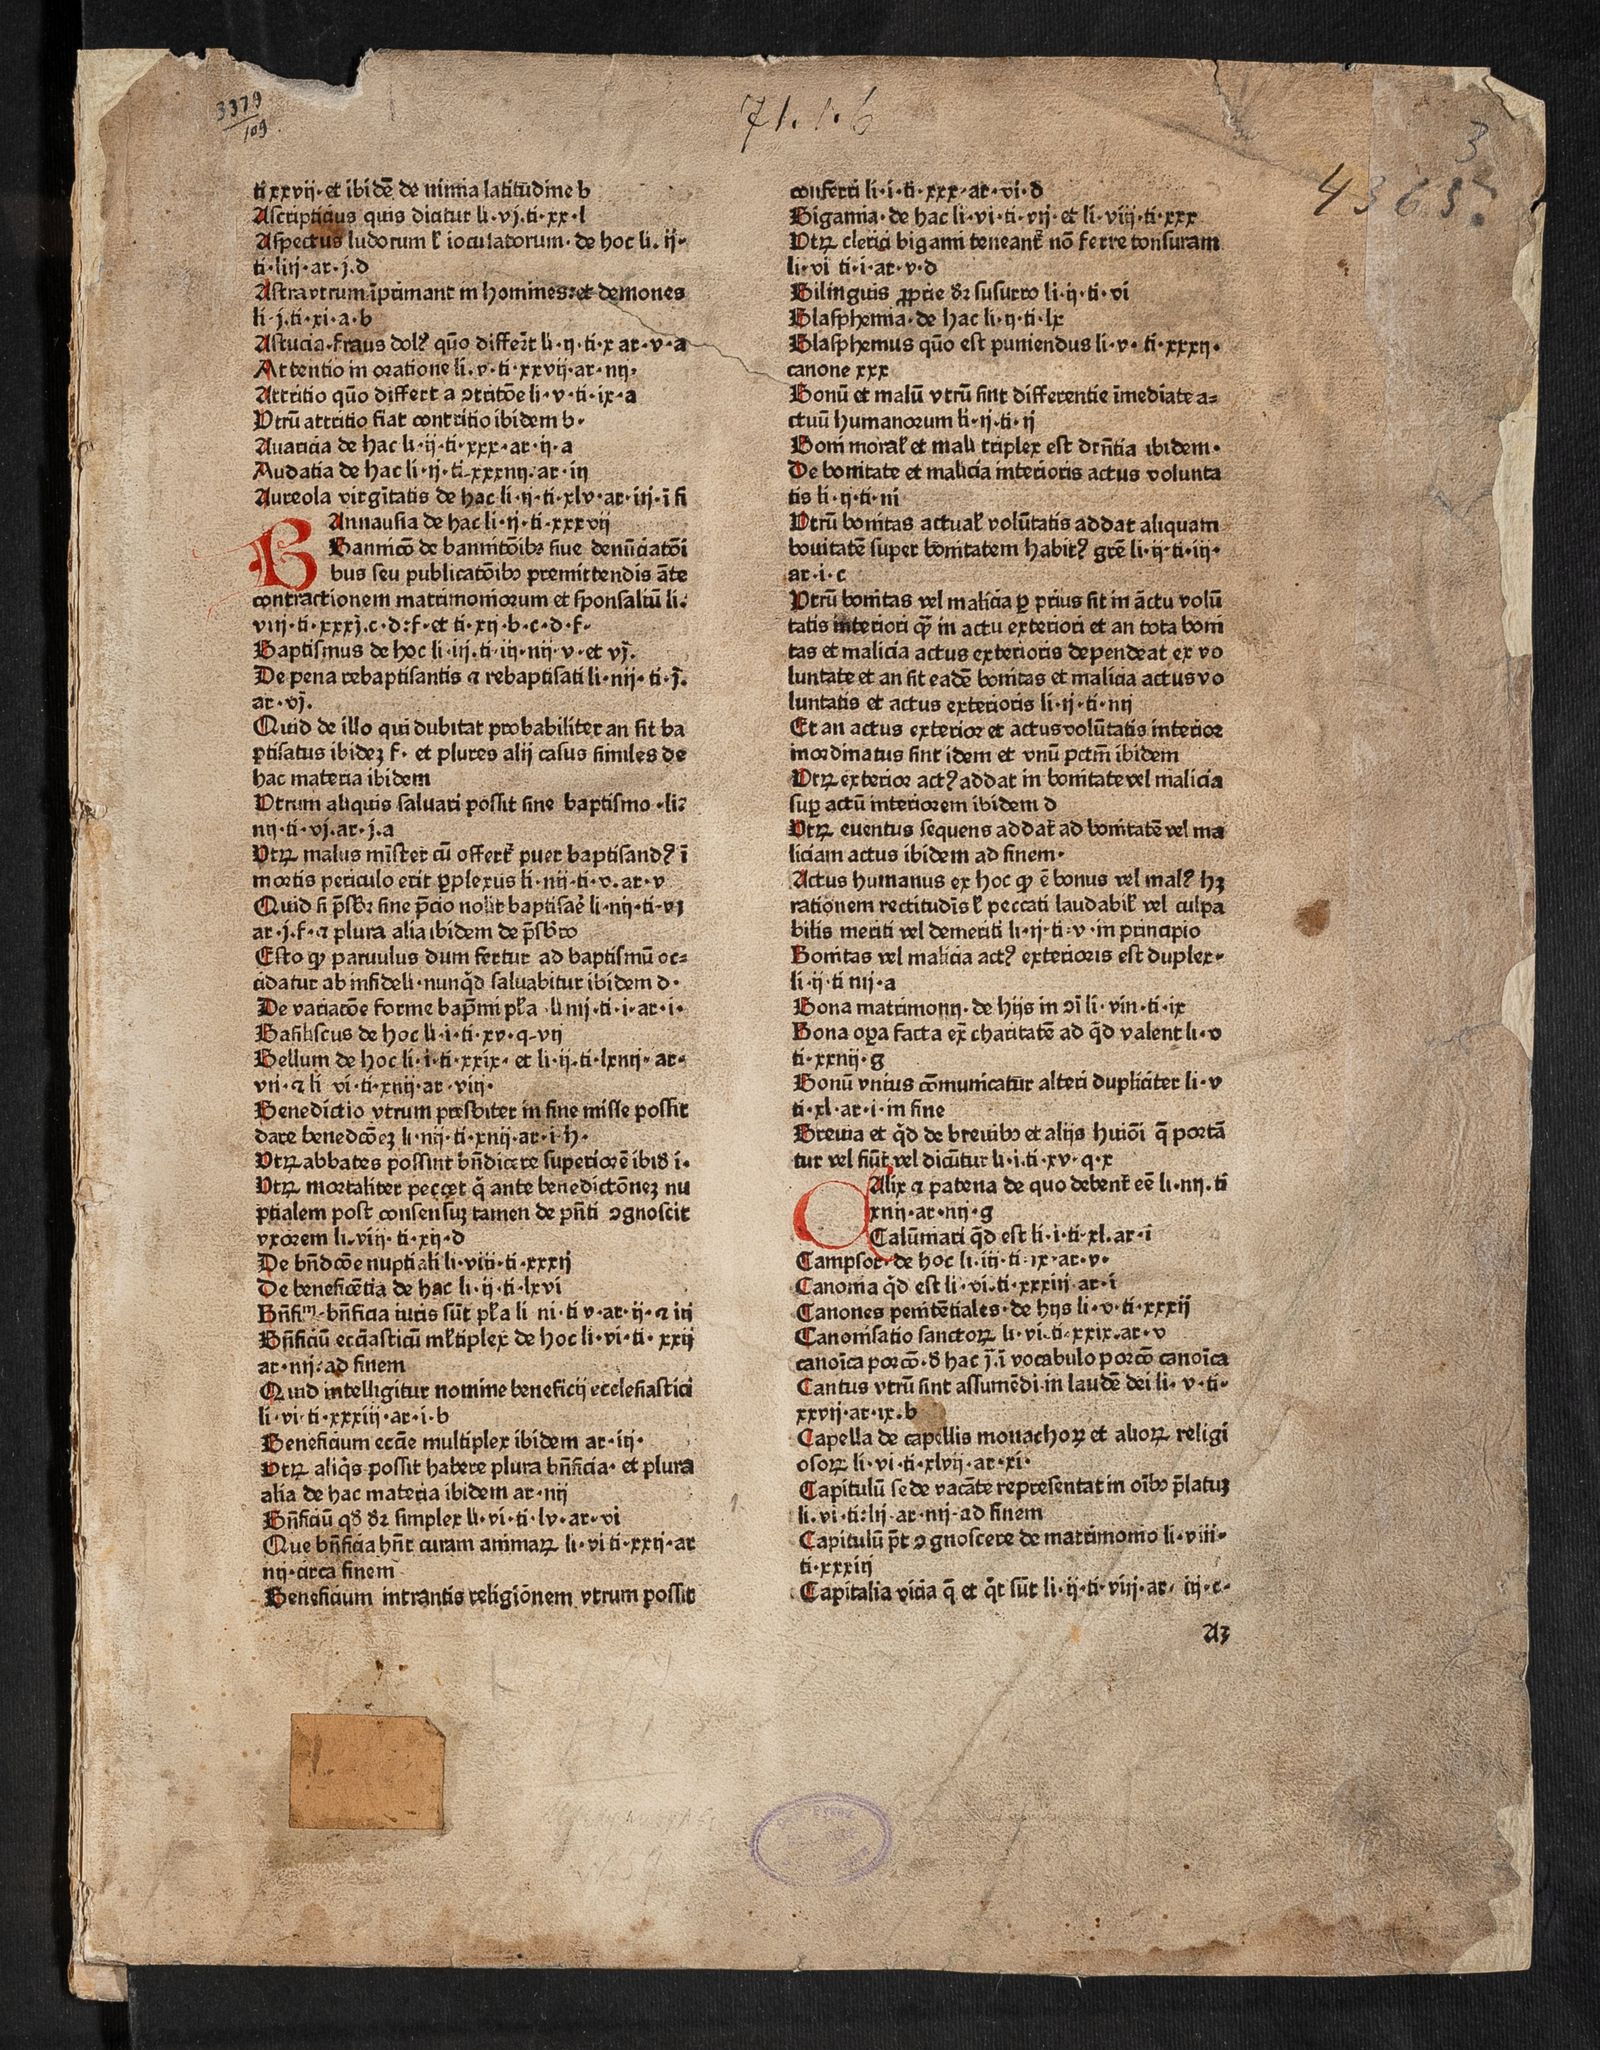 3379
109
71.1.6
3
4365.
ti xxvij· et ibidē de nimia latitudine b
Ascripticius quis dicitur li·vj·ti·xx·l
Aspectus ludorum ł ioculatorum· de hoc li·ij·
ti·liij·ar·j·d
Astra vtrum īprimant in homines: et demones
li·j·ti·xi·a·b
Astucia·fraus dolꝰ quō differt̄ li·ij·ti·x ar·v·a
Attentio in oratione li·v·ti·xxvij·ar·iiij·
Attritio quō differt a ↄtritōe li·v·ti·ix·a
Vtrū attritio fiat contritio ibidem b·
Auaricia de hac li·ij·ti·xxx·ar·ij·a
Audatia de hac li·ij·ti·xxxiiij·ar·iij
Aureola virgītatis de hac li·ij·ti·xlv·ar·iij·ī fi
BAnnausia de hac li·ij·ti·xxxvij
Bannicō de bannitōibꝫ siue denūciatōi
bus seu publicatōibꝫ premittendis āte
contractionem matrimoniorum et sponsaliū li·
viij·ti·xxxj·c·d·f·et ti·xij·b·c·d·f·
Baptismus de hoc li·iij·ti·iij·iiij·v·et vj·
De pena rebaptisantis ⁊ rebaptisati li·iiij·ti·j·
ar·vj·
Quid de illo qui dubitat probabiliter an sit ba
ptisatus ibideꝫ f· et plures alij casus similes de
hac materia ibidem
Vtrum aliquis saluari possit sine baptismo·li·
iiij·ti·vj·ar·j·a
Vtꝝ malus mīster cū offert̄ puer baptisandꝰ ī
mortis periculo erit ꝑplexus li·iiij·ti·v·ar·v
Quid si p̄sbr̄ sine p̄cio nolit baptisae̓ li·iiij·ti·vj
ar·j·f·⁊ plura alia ibidem de p̄sbr̄o
Esto ꝙ paruulus dum fertur ad baptismū oc=
cidatur ab infideli·nunq̄d saluabitur ibidem d·
De variacōe forme bap̄mi pl̄a li iiij·ti·i·ar·i·
Basiliscus de hoc li·i·ti·xv·q·vij
Bellum de hoc li·i·ti·xxix· et li·ij·ti·lxiiij·ar·
vii·⁊ li vi·ti·xiiij·ar·viij·
Benedictio vtrum presbiter in fine misse possit
dare benedcōeꝫ li·iiij·ti·xiiij·ar·i·h·
Vtꝝ abbates possint bn̄dicere superiorē ibid̄ i·
Vtꝝ mortaliter peccet q̄ ante benedictōneꝫ nu
ptialem post consensuꝫ tamen de pn̄ti ↄgnoscit
vxorem li·viij·ti·xij·d
De bn̄dcōe nuptiali li·viii·ti·xxxij
De beneficētia de hac li·ij·ti·lxvi
Bn̄fiᵐ·bn̄ficia iuris sūt pl̄a li iii·ti v·ar·ij·⁊ iij
Bn̄ficiū eccīasticū ml̄tiplex de hoc li·vi·ti·xxij
ar·iiij·ad finem
Quid intelligitur nomine beneficij ecclesiastici
li·vi·ti·xxxiij·ar·i·b
Beneficium eccīe multiplex ibidem ar·iij·
Vtꝝ aliq̄s possit habere plura bn̄ficia· et plura
alia de hac materia ibidem ar·iiij
Bn̄ficiū qd̄ dr̄ simplex li·vi·ti·lv·ar·vi
Que bn̄ficia hn̄t curam animaꝝ li·vi ti·xxij·ar
iiij·circa finem
Beneficium intrantis religiōnem vtrum possit
conferri li·i·ti·xxx·ar·vi·d
Bigamia·de hac li·vi·ti·vij·et li·viij·ti·xxx
Vtꝝ clerici bigami teneant̄ nō ferre tonsuram
li·vi ti·i·ar·v·d
Bilinguis ꝓprie dr̄ susurro li·ij·ti·vi
Blasphemia·de hac li·ij·ti·lx
Blasphemus quō est puniendus li·v·ti·xxxij·
canone xxx
Bonū et malū vtrū sint differentie īmediate a=
ctuū humanorum li·ij·ti·ij
Boni moral̄ et mali triplex est drn̄tia ibidem·
De bonitate et malicia interioris actus volunta
tis li·ij·ti·iii
Vtrū bonitas actual̄ volūtatis addat aliquam
bouitatē super bonitatem habitꝰ grē li·ij·ti·iij·
ar·i·c
Vtrū bonitas vel malicia ꝑ prius sit in āctu volū
tatis interiori ꝙ̄ in actu exteriori et an tota boni
tas et malicia actus exterioris dependeat ex vo
luntate et an sit eadē bonitas et malicia actus vo
luntatis et actus exterioris li·ij·ti·iiij
Et an actus exterior et actus volūtatis interior
inordinatus sint idem et vnū pctm̄ ibidem
Vtꝝ exterior actꝰ addat in bonitate vel malicia
suꝑ actū interiorem ibidem d
Vtꝝ euentus sequens addat̄ ad bonitatē vel ma
liciam actus ibidem ad finem·
Actus humanus ex hoc ꝙ ē bonus vel malꝰ hꝫ
rationem rectitudīs ł peccati laudabil̄ vel culpa
bilis meriti vel demeriti li·ij·ti·v·in principio
Bonitas vel malicia actꝰ exterioris est duplex·
li·ij ti iiij·a
Bona matrimonij·de hijs in ↄi li·viii·ti·ix
Bona oꝑa facta ex̄ charitatē ad q̄d valent li·v
ti·xxiiij·g
Bonū vnius cōmunicatur alteri dupliciter li·v
ti·xl·ar·i·in fine
Breuia et q̄d de breuibꝫ et alijs huiōi q̄ portā
tur vel fiūt vel dicūtur li·i·ti·xv·q·x
CAlix ⁊ patena de quo debent̄ eē li·iiij·ti
xiiij·ar·iiij·g
Calūmari q̄d est li·i·ti·xl·ar·i
Campsor·de hoc li·iii·ti·ix·ar·v·
Canonia q̄d est li·vi·ti·xxxiij·ar·i
Canones penitētiales·de hijs li·v·ti·xxxij
Canonisatio sanctoꝝ li·vi·ti·xxix·ar·v
canoīca porcō·d̄ hac j·ī vocabulo porcō canoīca
Cantus vtrū sint assumēdi in laudē dei li·v·ti·
xxvij·ar·ix·b
Capella de capellis mouachoꝝ et alioꝝ religi
osoꝝ li·vi·ti·xlvij·ar·xi·
Capitulū sede vacāte representat in oībꝫ p̄latuꝫ
li·vi·ti·lij·ar·iiij·ad finem
Capitulū pn̄t ↄgnoscere de matrimonio li·viii·
ti·xxxiij
Capitalia vicia q̄ et q̄t sūt li·ij·ti·viij·ar·iij·c·
Aꝫ